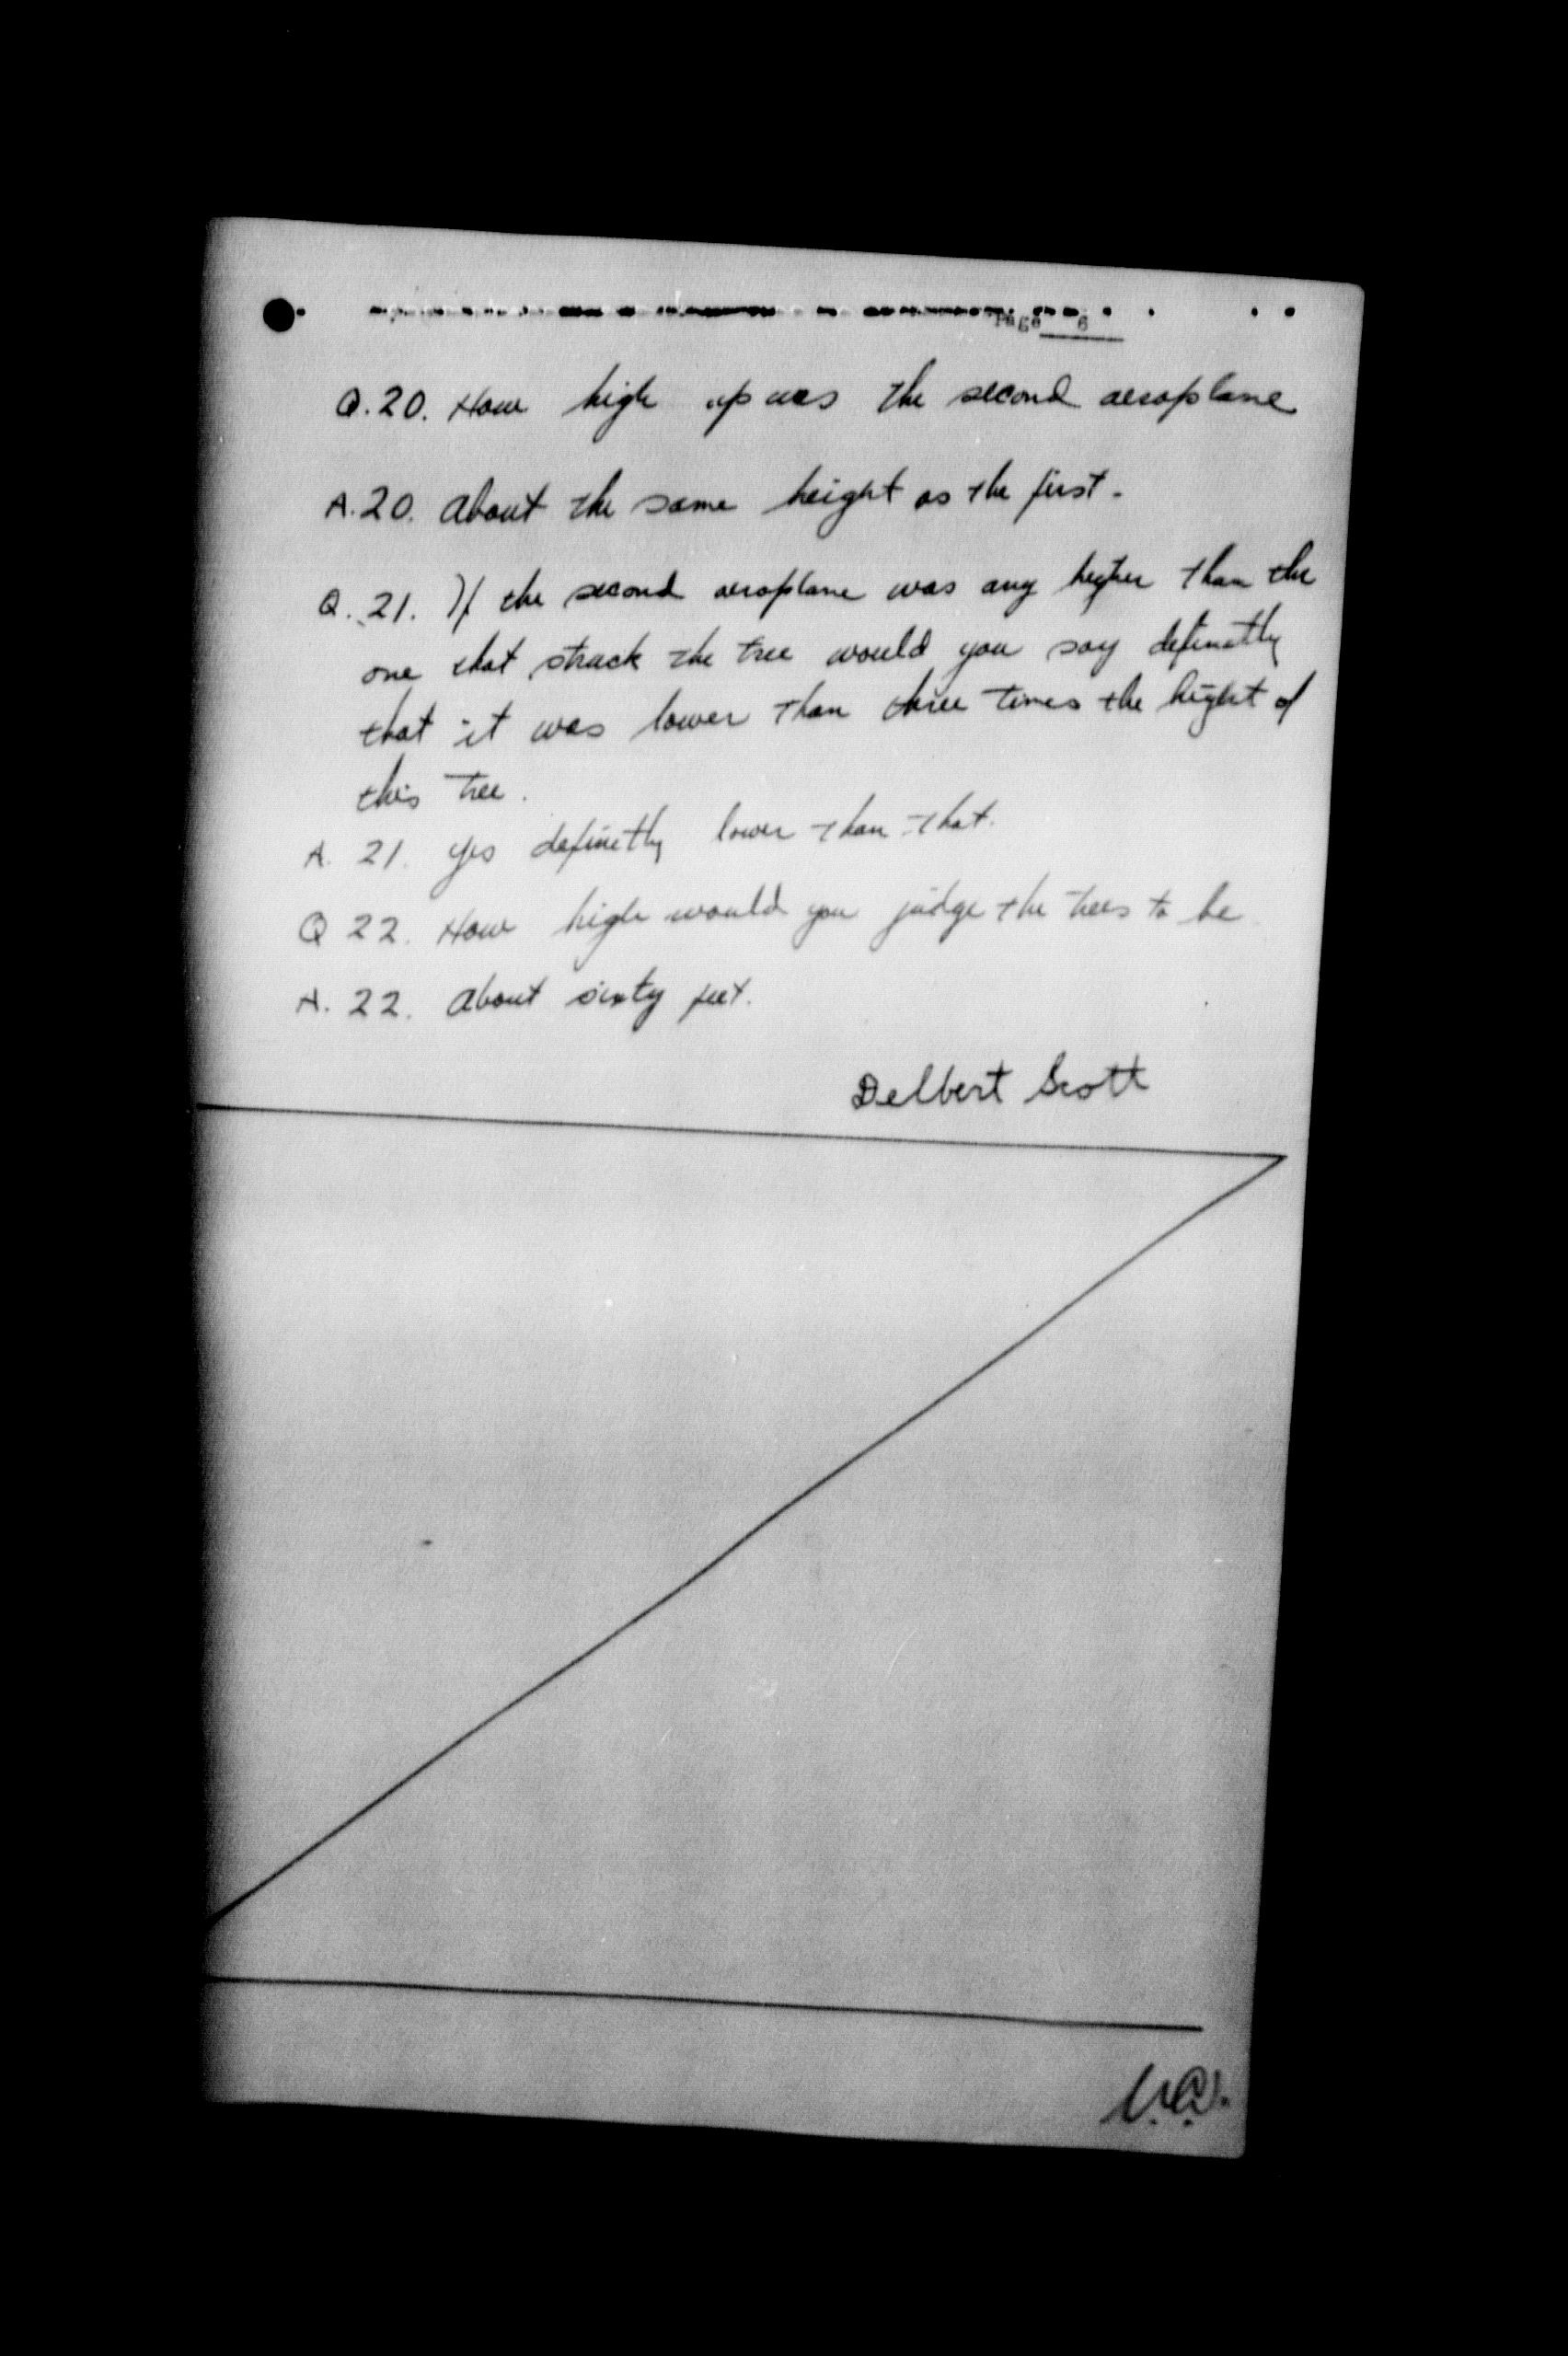 Page 6
Q.20. How high up was the second aeroplane
A.20. About the same height as the first.
Q. 21. If the second aeroplane was any higher than the
one that struck the tree would you say definatly
that it was lower than three times the hight of
this tree.
A. 21. Yes definetly lower than that.
Q 22. How high would you judge the trees to be
A. 22. About sixty feet.
Delbert Scott